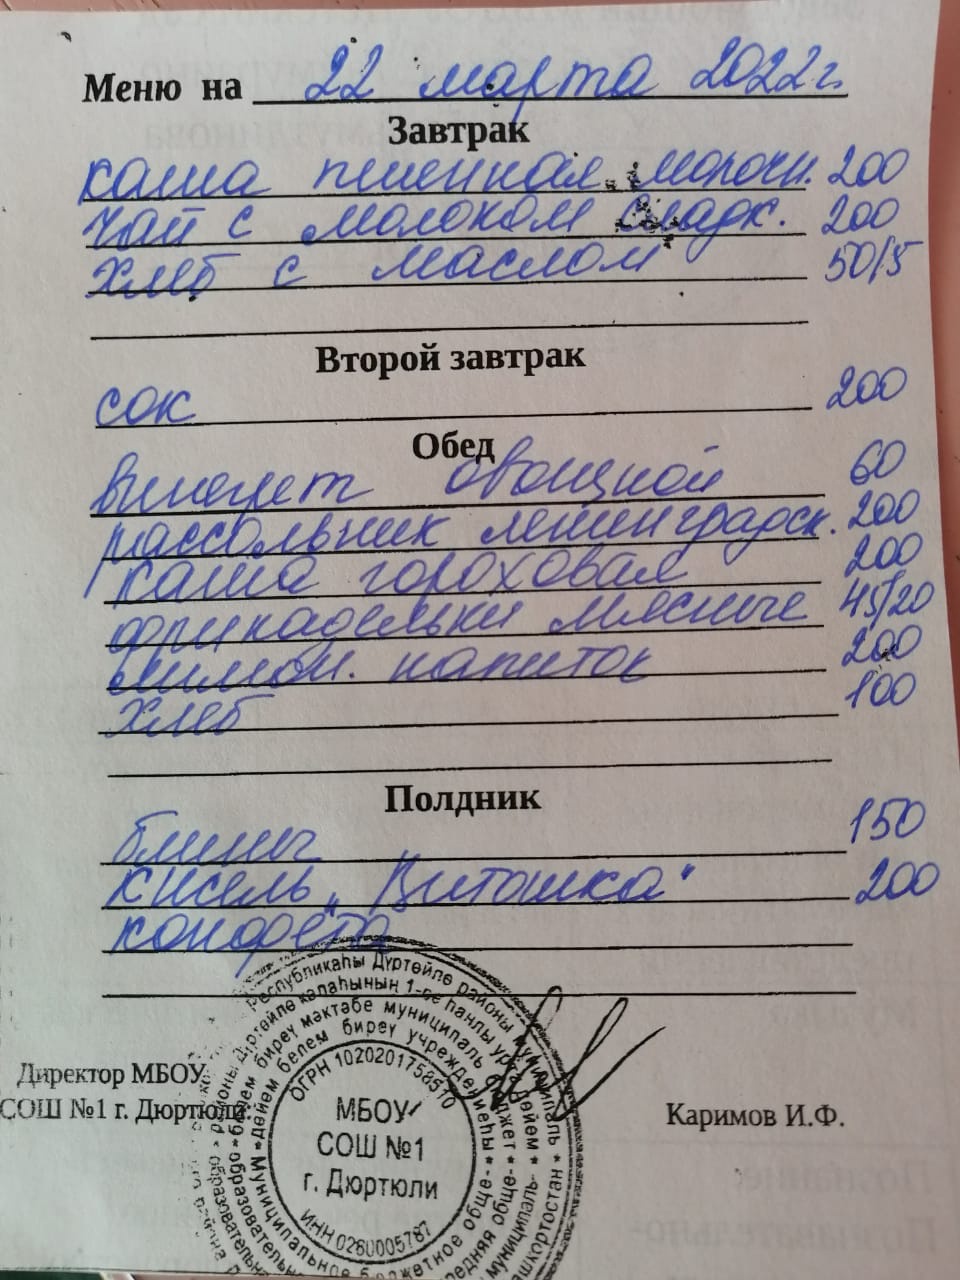 Меню на 22 марта 2022 г.
Завтрак
каша пшенная молочн. 200
чай с молоком сладк. 200
хлеб с маслом 50/5
Второй завтрак
сок 200
Обед
винегрет овощной 60
рассольник ленинградск. 200
каша гороховая 200
фрикадельки мясные 45/20
лимон. напиток 200
хлеб 100
Полдник
блины 150
кисель "Витошка" 200
конфета
Директор МБОУ
СОШ №1 г. Дюртюли:
Каримов И.Ф.
Республикаһы Дүртөйлө районы муниципаль
Дүртөйлө ҡалаһының 1-се һанлы урта дөйөм
белем биреү мәктәбе муниципаль бюджет
дөйөм белем биреү учреждениеһы
ОГРН 1020201758510
МБОУ
СОШ №1
г. Дюртюли
ИНН 0260005787
Муниципальное бюджетное обще-